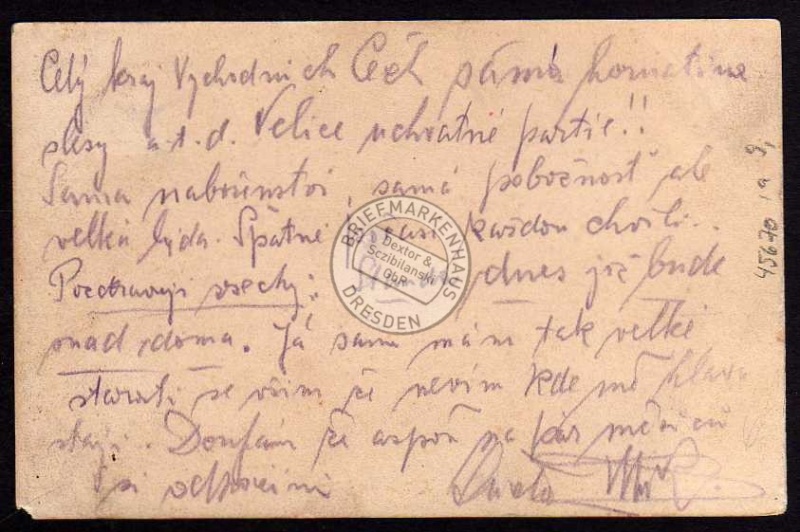 Celý kraj Východních Čech samá hornatina
a.t.d. Velice uchvatné partie!!
Sama naboženství, samá pobožnost' ale
velká byda. Špatné časi každou chvíli..
Pozdravuji všechy! dnes již bude
snad doma. Já sám mám tak velké
starosti se vším že nevím kde mě hlava
stoji. Doufám že aspoň na pár měsíců
si odpočinu
BRIEFMARKENHAUS
Dextor &
Sczibilanski
GbR
DRESDEN
45670 1a 9,